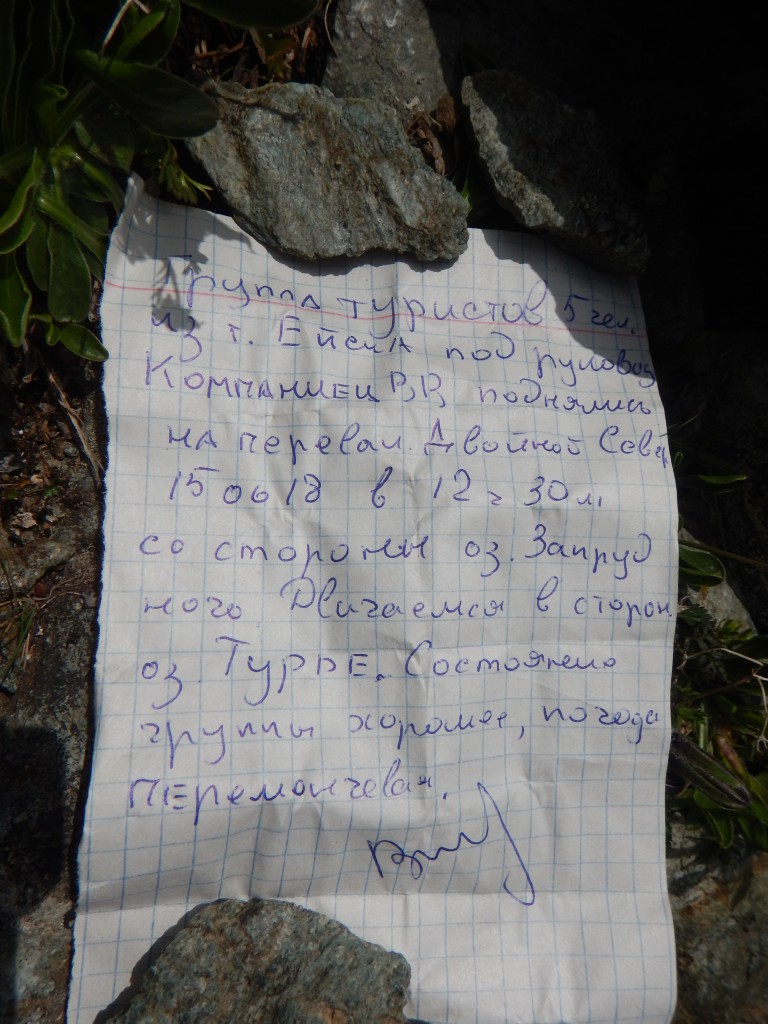 Группа туристов 5 чел.
из г. Ейска под руковод
Компаниец ВВ поднялись
на перевал Двойной Сев
15 06 18 в 12 ч 30 м.
со стороны оз. Запруд
ного Двигаемся в сторон
оз. Турье. Состояние
группы хорошее, погода
переменчевая.